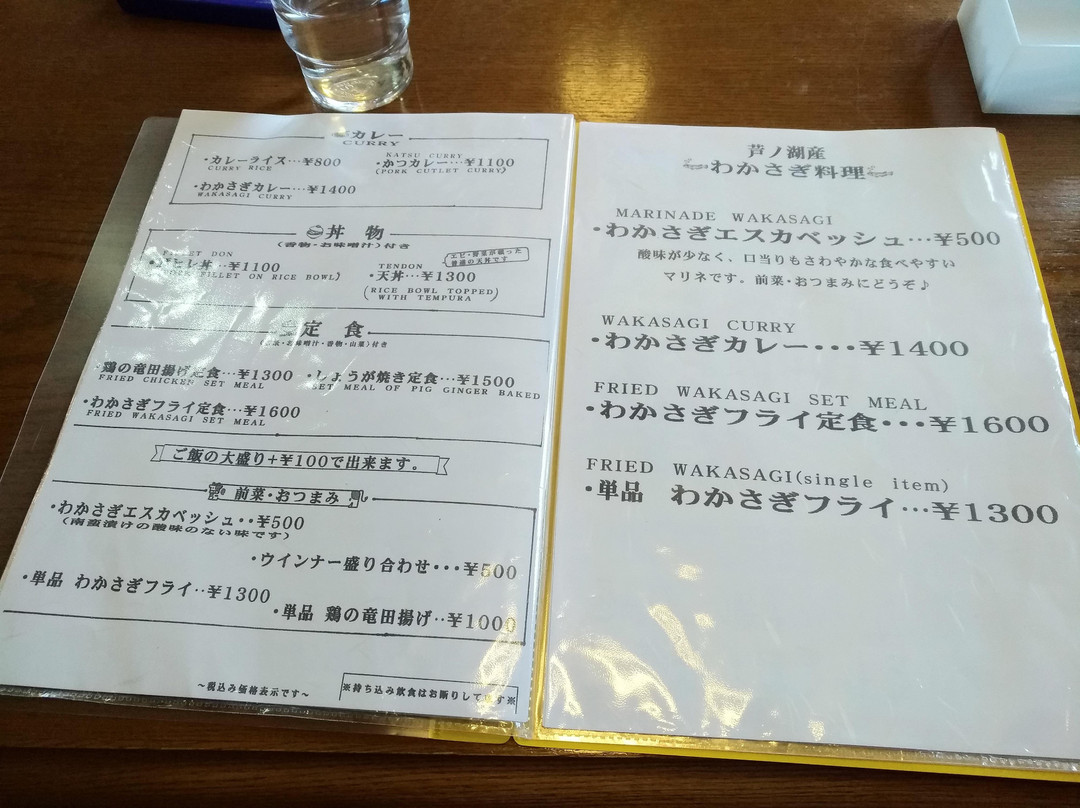 カレー
CURRY
・カレーライス…¥800
CURRY RICE
KATSU CURRY
・かつカレー…¥1100
(PORK CUTLET CURRY)
・わかさぎカレー…¥1400
WAKASAGI CURRY
丼 物
(香物・お味噌汁)付き
DON
ヒレ丼…¥1100
FILLET ON RICE BOWL)
エビ・野菜が載った
普通の天丼です
TENDON
・天丼…¥1300
(RICE BOWL TOPPED
WITH TEMPURA)
定 食
お味噌汁・香物・山菜)付き
鶏の竜田揚げ定食…¥1300
FRIED CHICKEN SET MEAL
・しょうが焼き定食…¥1500
SET MEAL OF PIG GINGER BAKED
・わかさぎフライ定食…¥1600
FRIED WAKASAGI SET MEAL
ご飯の大盛り+¥100で出来ます。
前菜・おつまみ
・わかさぎエスカベッシュ・・¥500
(南蛮漬けの酸味のない味です)
・ウインナー盛り合わせ・・・¥500
・単品 わかさぎフライ‥¥1300
・単品 鶏の竜田揚げ‥¥1000
～税込み価格表示です～
※持ち込み飲食はお断りしてます※
芦ノ湖産
わかさぎ料理
MARINADE WAKASAGI
・わかさぎエスカベッシュ…¥500
酸味が少なく、口当りもさわやかな食べやすい
マリネです。前菜・おつまみにどうぞ♪
WAKASAGI CURRY
・わかさぎカレー・・・¥1400
FRIED WAKASAGI SET MEAL
・わかさぎフライ定食・・・¥1600
FRIED WAKASAGI(single item)
・単品 わかさぎフライ…¥1300